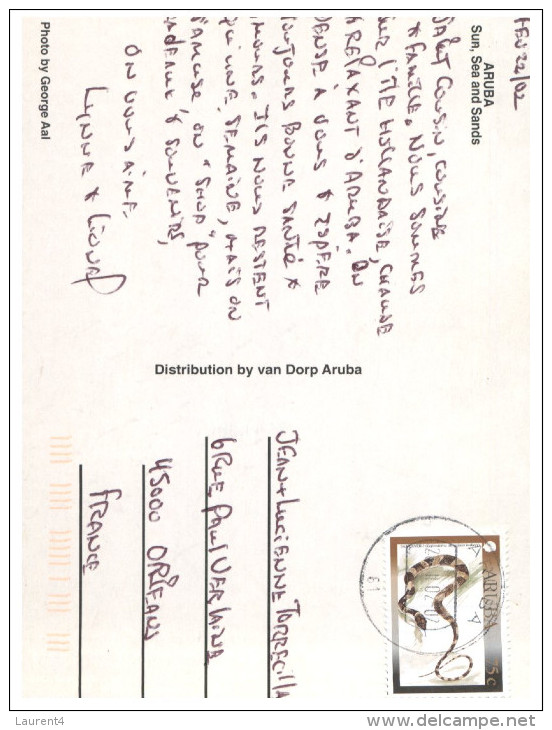 FEV 22/02
ARUBA
Sun, Sea and Sands
SALUT COUSIN, COUSINE
& FAMILLE. NOUS SOMMES
SUR L'ÎLE HOLLANDAISE, CHAUDE
& RELAXANT D'ARUBA. ON
PENSE À VOUS & ESPÈRE
TOUJOURS BONNE SANTÉ &
AMOURS. ILS NOUS RESTENT
QU'UNE SEMAINE, MAIS ON
S'AMUSE ON "SHOP" POUR
CADEAUX & SOUVENIRS,
ON VOUS AIME.
LYNNE & LIONEL
Photo by George Aal
Distribution by van Dorp Aruba
ARUBA
5c
JEAN & LUCIENNE TORRECILLA
6 RUE PAUL VERLAINE
45000 ORLÉANS
FRANCE
Laurent4
www.delcampe.net